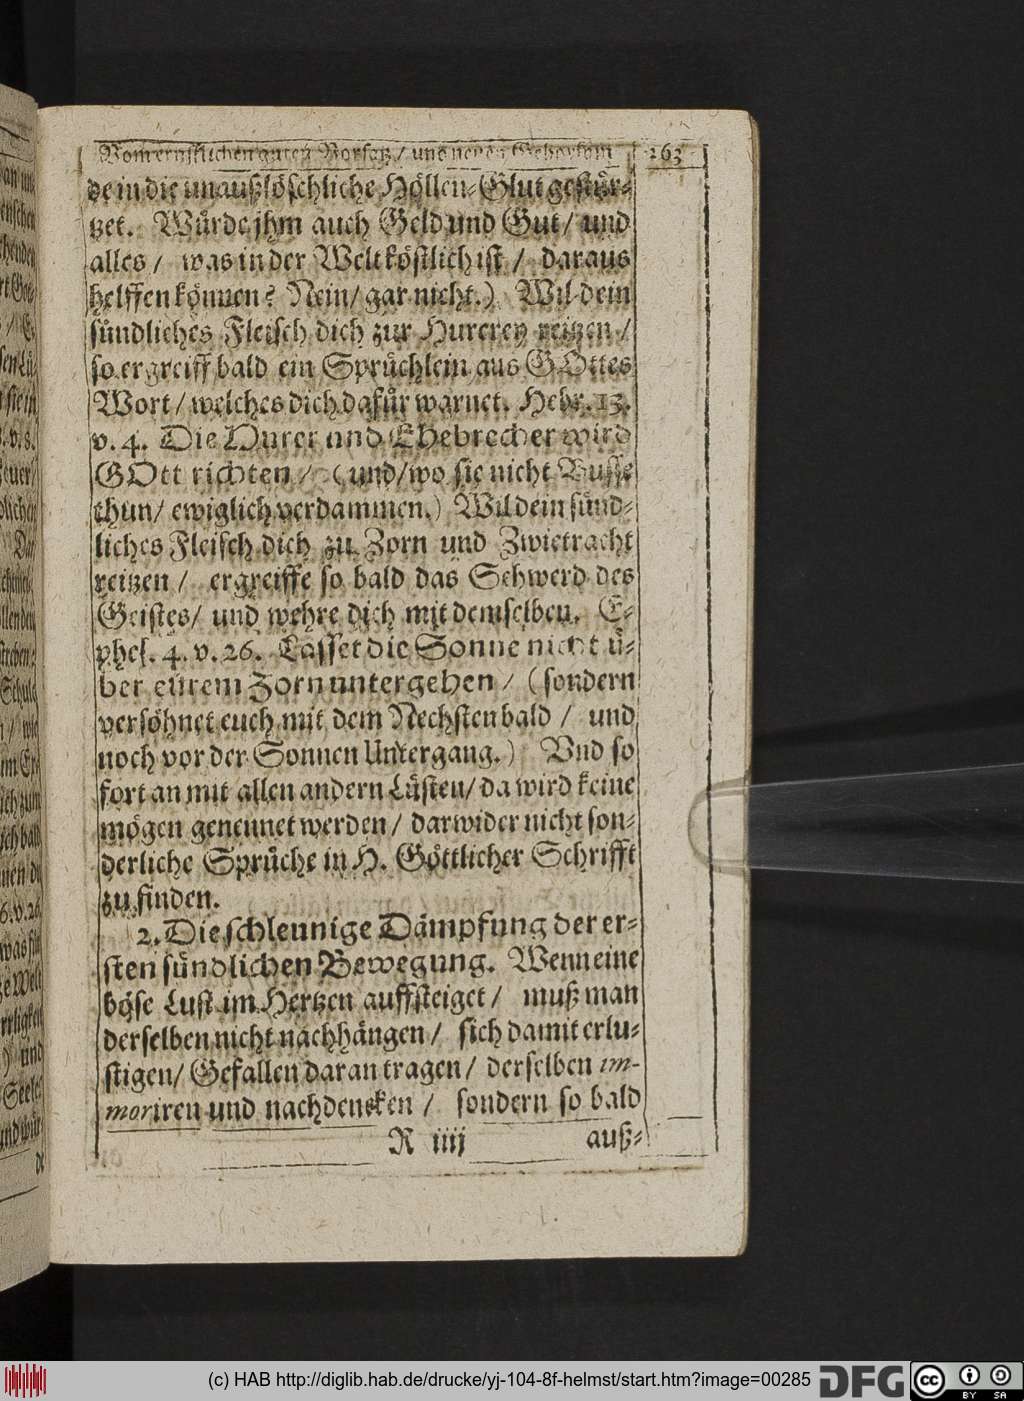 Vom ernstlichen guten Vorsatz / und neuen Gehorsam 263
de in die unaußlöschliche Höllen-Glut gestür-
tzet. Würde jhm auch Geld und Gut / und
alles / was in der Welt köstlich ist / daraus
helffen können? Nein / gar nicht.) Wil dein
sündliches Fleisch dich zur Hurerey reitzen /
so ergreiff bald ein Sprüchlein aus GOttes
Wort / welches dich dafür warnet. Hebr. 13.
v. 4. Die Hurer und Ehebrecher wird
GOtt richten / (und / wo sie nicht Busse
thun / ewiglich verdammen.) Wil dein sünd-
liches Fleisch dich zu Zorn und Zwietracht
reitzen / ergreiffe so bald das Schwerd des
Geistes / und wehre dich mit demselben. E-
phes. 4. v. 26. Lasset die Sonne nicht ü-
ber eurem Zorn untergehen / (sondern
versöhnet euch mit dem Nechsten bald / und
noch vor der Sonnen Untergang.) Vnd so
fort an mit allen andern Lüsten / da wird keine
mögen genennet werden / darwider nicht son-
derliche Sprüche in H. Göttlicher Schrifft
zu finden.
2. Die schleunige Dämpfung der er-
sten sündlichen Bewegung. Wenn eine
böse Lust im Hertzen auffsteiget / muß man
derselben nicht nachhängen / sich damit erlu-
stigen / Gefallen daran tragen / derselben im-
moriren und nachdencken / sondern so bald
R iiij auß-
(c) HAB http://diglib.hab.de/drucke/yj-104-8f-helmst/start.htm?image=00285
DFG
cc BY SA